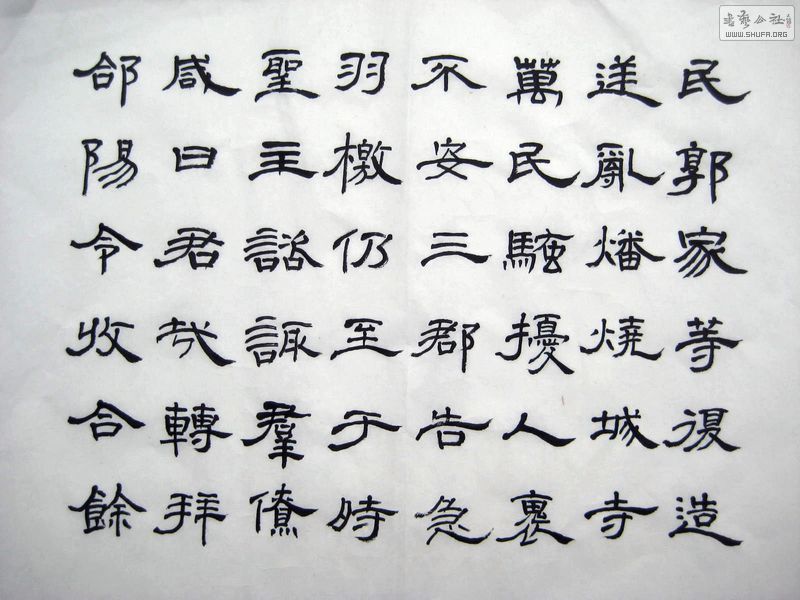 民郭家等復造
逆亂燔燒城寺
萬民騷擾人裏
不安三郡告急
羽檄仍至于時
聖主諮諏羣僚
咸曰君哉轉拜
郃陽令收合餘
書藝公社
WWW.SHUFA.ORG